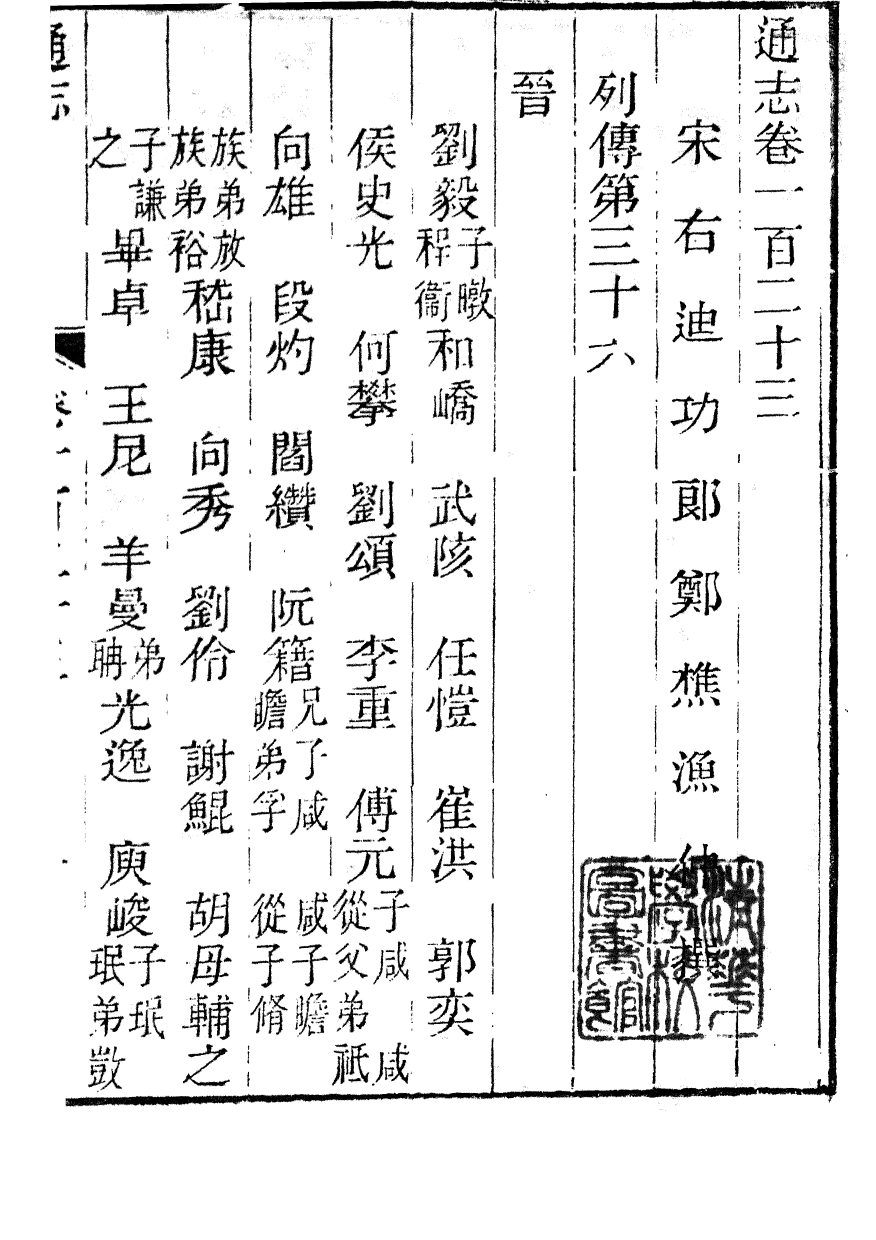 通志卷一百二十三
宋右迪功郎鄭樵漁仲撰
列傳第三十六
晉
劉毅子暾程衞和嶠 武陔 任愷 崔洪 郭奕
侯史光 何攀 劉頌 李重 傅元子咸 咸從父弟祗
向雄 段灼 閻纘 阮籍兄子咸 咸子瞻 瞻弟孚 從子脩
族弟放族弟裕嵇康 向秀 劉伶 謝鯤 胡母輔之
子謙之畢卓 王尼 羊曼弟聃光逸 庾峻子珉珉弟敳
通志
清華學校圖書館